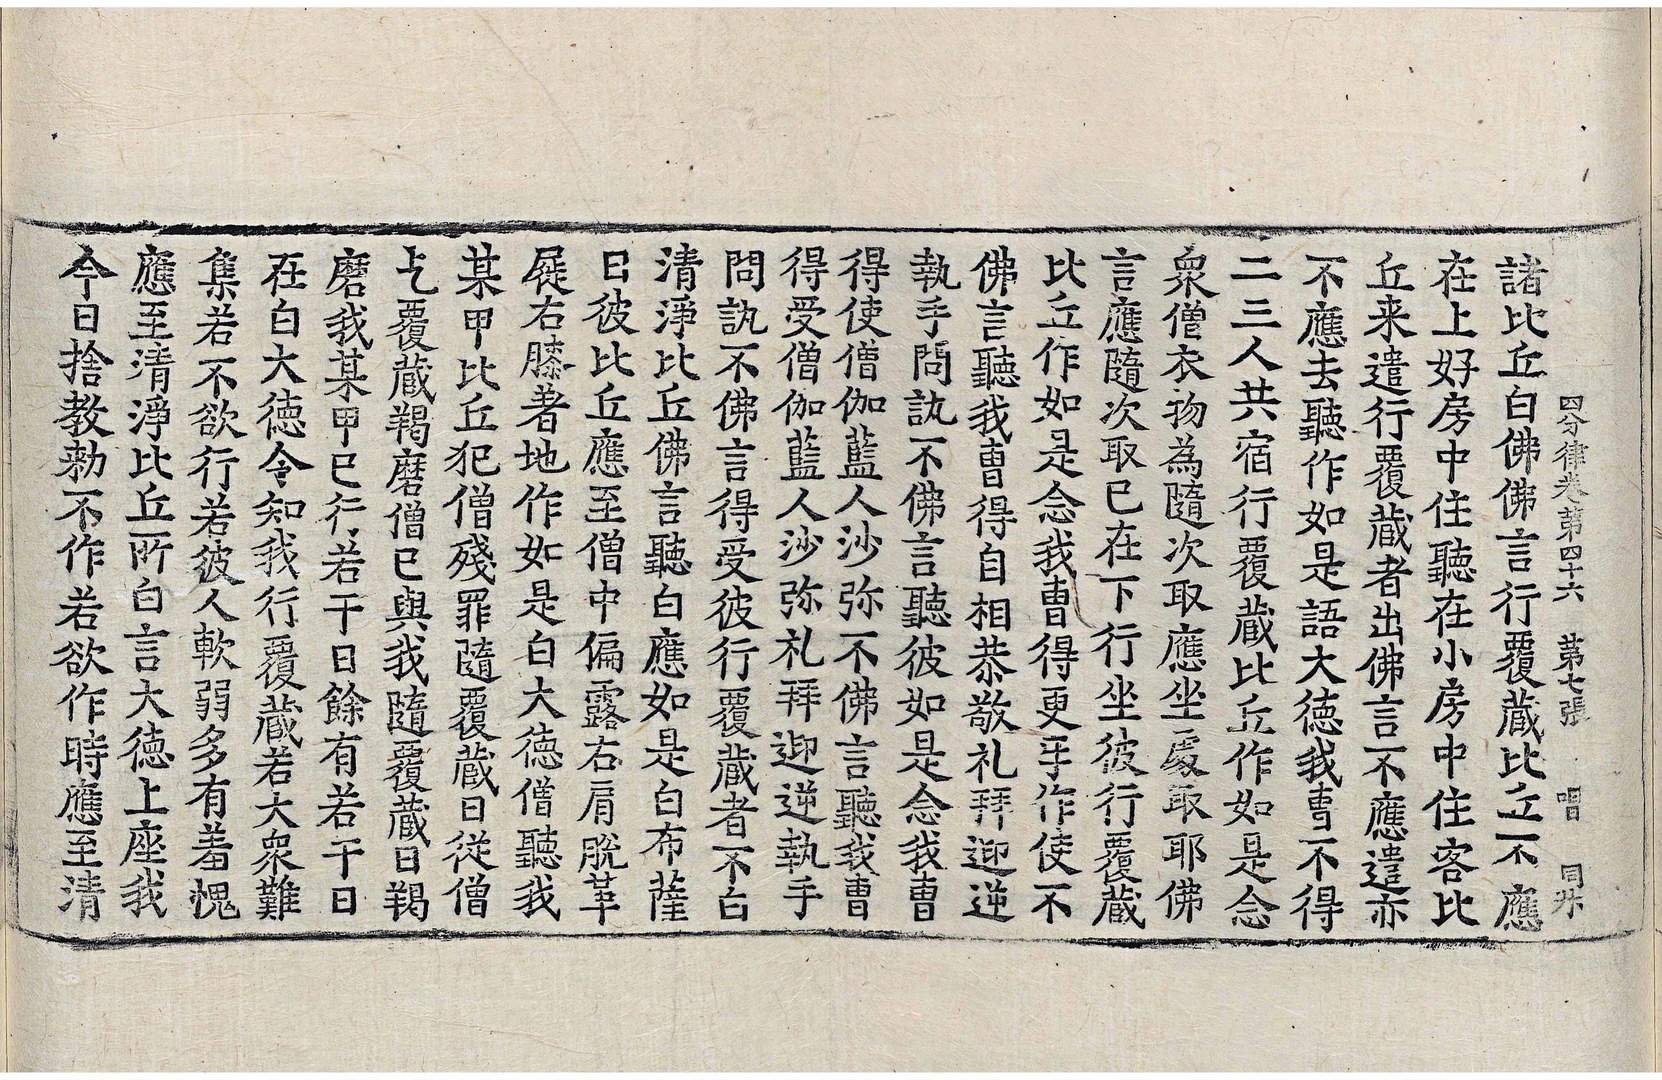 四分律卷第四十六 第七張 唱 同舛
諸比丘白佛佛言行覆蔵比丘不應
在上好房中住聽在小房中住客比
丘来遣行覆蔵者出佛言不應遣亦
不應去聽作如是語大徳我曺不得
二三人共宿行覆蔵比丘作如是念
衆僧衣物為隨次取應坐處取耶佛
言應隨次取已在下行坐彼行覆蔵
比丘作如是念我曺得更㸦作使不
佛言聽我曺得自相恭敬礼拜迎逆
執手問訊不佛言聽彼如是念我曺
得使僧伽藍人沙弥不佛言聽我曺
得受僧伽藍人沙弥礼拜迎逆執手
問訊不佛言得受彼行覆蔵者不白
清淨比丘佛言聽白應如是白布薩
日彼比丘應至僧中偏露右肩脫革
屣右膝著地作如是白大徳僧聽我
某甲比丘犯僧殘罪隨覆蔵日從僧
乞覆蔵羯磨僧已與我隨覆蔵日羯
磨我某甲已行若干日餘有若干日
在白大徳令知我行覆蔵若大衆難
集若不欲行若彼人軟弱多有羞愧
應至清淨比丘所白言大徳上座我
今日捨教勑不作若欲作時應至清